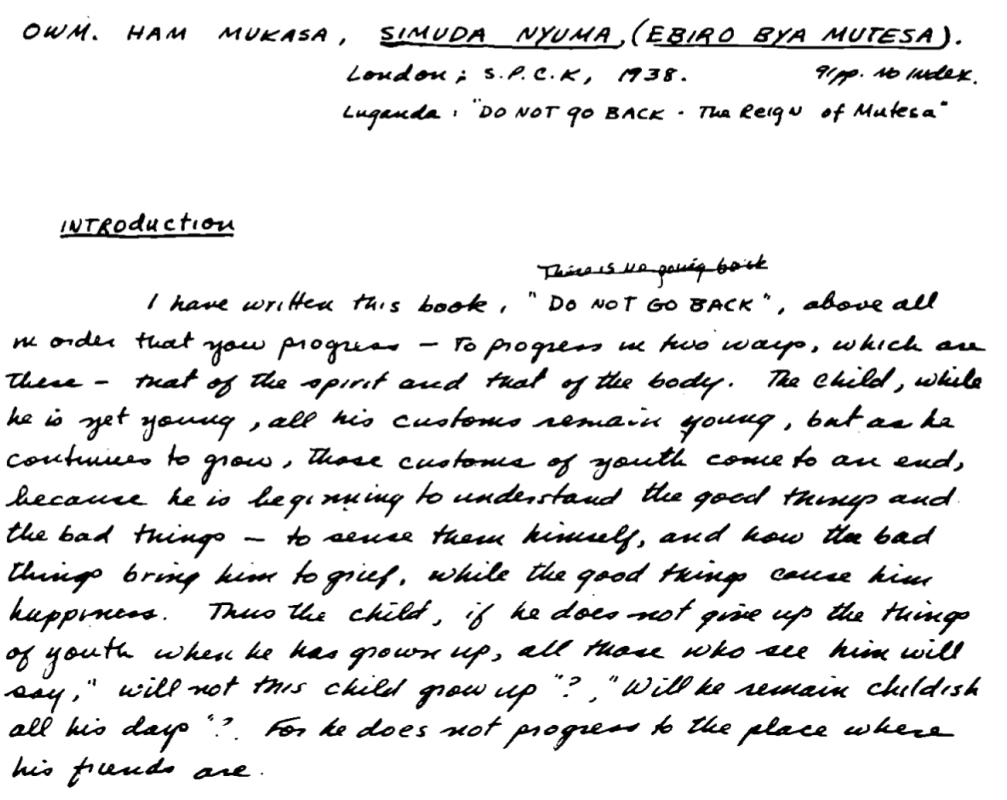 OWM. HAM MUKASA, SIMUDA NYUMA, (EBIRO BYA MUTESA).
London; S.P.C.K, 1938. 91pp. no index.
Luganda: "DO NOT GO BACK - The Reign of Mutesa"
INTRODUCTION
There is no going back
I have written this book, "DO NOT GO BACK", above all
in order that you progress - To progress in two ways, which are
these - that of the spirit and that of the body. The child, while
he is yet young, all his customs remain young, but as he
continues to grow, those customs of youth come to an end,
because he is beginning to understand the good things and
the bad things - to sense them himself, and how the bad
things bring him to grief, while the good things cause him
happiness. Thus the child, if he does not give up the things
of youth when he has grown up, all those who see him will
say, "will not this child grow up"?, "Will he remain childish
all his days"?. For he does not progress to the place where
his friends are.